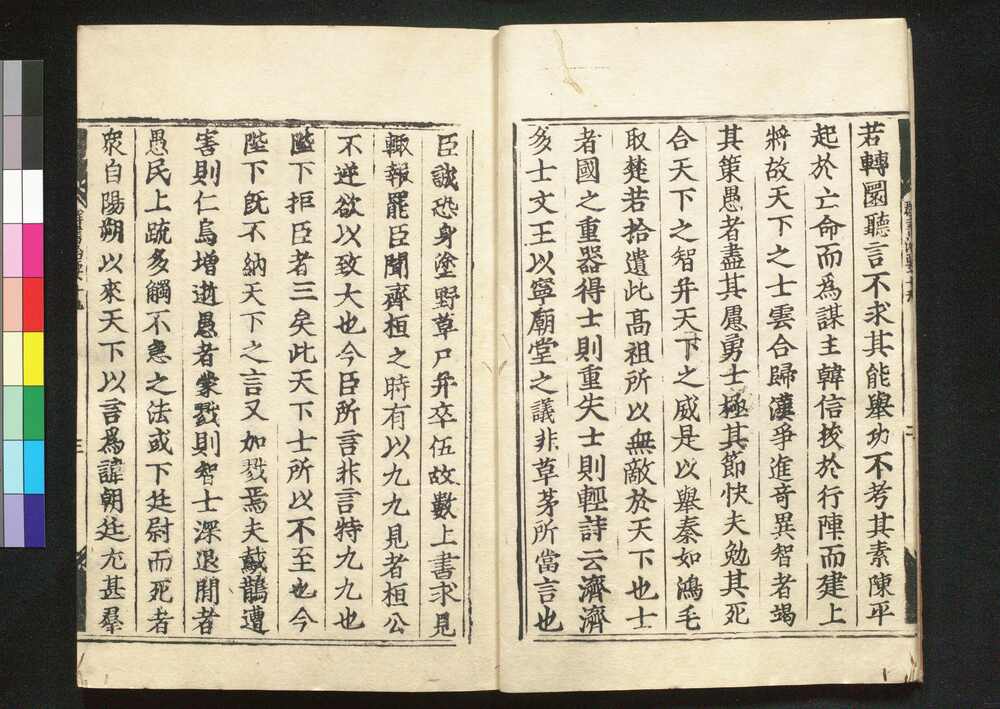 若轉圜聽言不求其能舉功不考其素陳平
起於亡命而爲謀主韓信拔於行陣而建上
將故天下之士雲合歸漢爭進奇異智者竭
其策愚者盡其慮勇士極其節怯夫勉其死
合天下之智并天下之威是以舉秦如鴻毛
取楚若拾遺此高祖所以無敵於天下也士
者國之重器得士則重失士則輕詩云濟濟
多士文王以寧廟堂之議非草茅所當言也
臣誠恐身塗野草尸并卒伍故數上書求見
輙報罷臣聞齊桓之時有以九九見者桓公
不逆欲以致大也今臣所言非言特九九也
陛下拒臣者三矣此天下士所以不至也今
陛下既不納天下之言又加戮焉夫䳒鵲遭
害則仁鳥增逝愚者蒙戮則智士深退閒者
愚民上疏多觸不急之法或下廷尉而死者
衆自陽朔以來天下以言爲諱朝廷尤甚羣